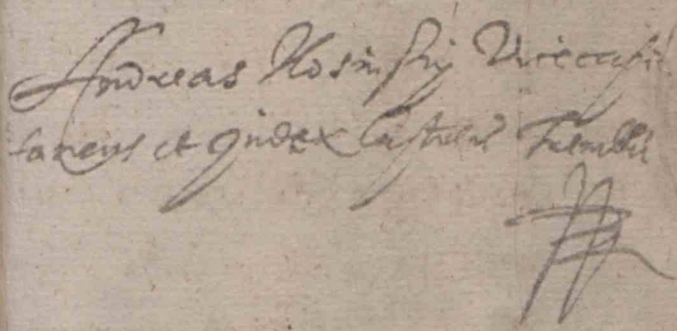 Andreas Kosinsky Vicecapi
taneus et Judex Castren Trembli